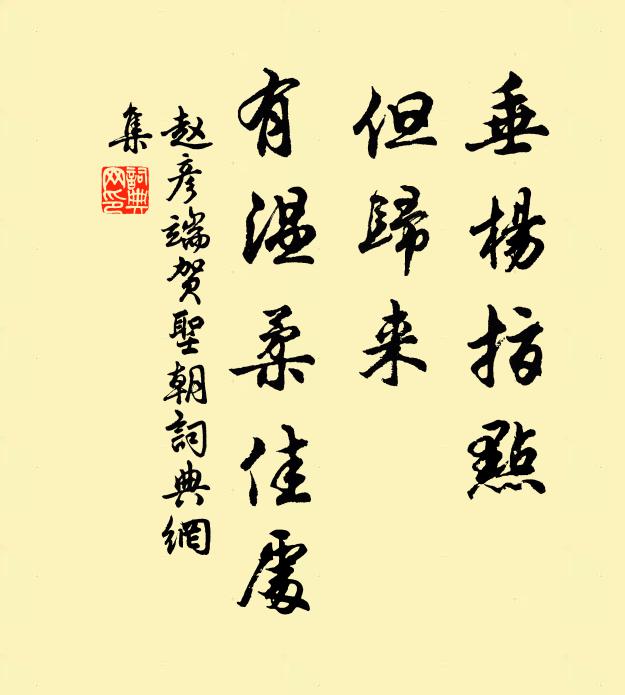 垂楊指點
但歸来
有温柔佳處
赵彦端贺聖朝詞典網
集
詞典
网印